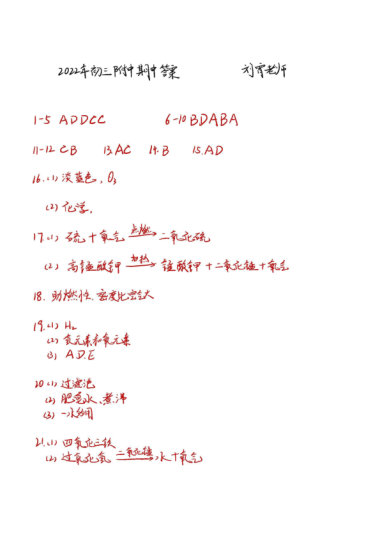 2022年初三附中期中答案 刘雷老师
1-5 ADDCC 6-10 BDABA
11-12 CB 13. AC 14. B 15. AD
16. (1) 淡蓝色, O3
(2) 化学,
17. (1) 硫 + 氧气 点燃→ 二氧化硫
(2) 高锰酸钾 加热→ 锰酸钾 + 二氧化锰 + 氧气
18. 助燃性. 密度比空气大
19. (1) H2
(2) 氢元素和氧元素
(3) A.D.E
20 (1) 过滤池
(2) 肥皂水、煮沸
(3) 一水多用
21. (1) 四氧化三铁
(2) 过氧化氢 二氧化锰→ 水 + 氧气